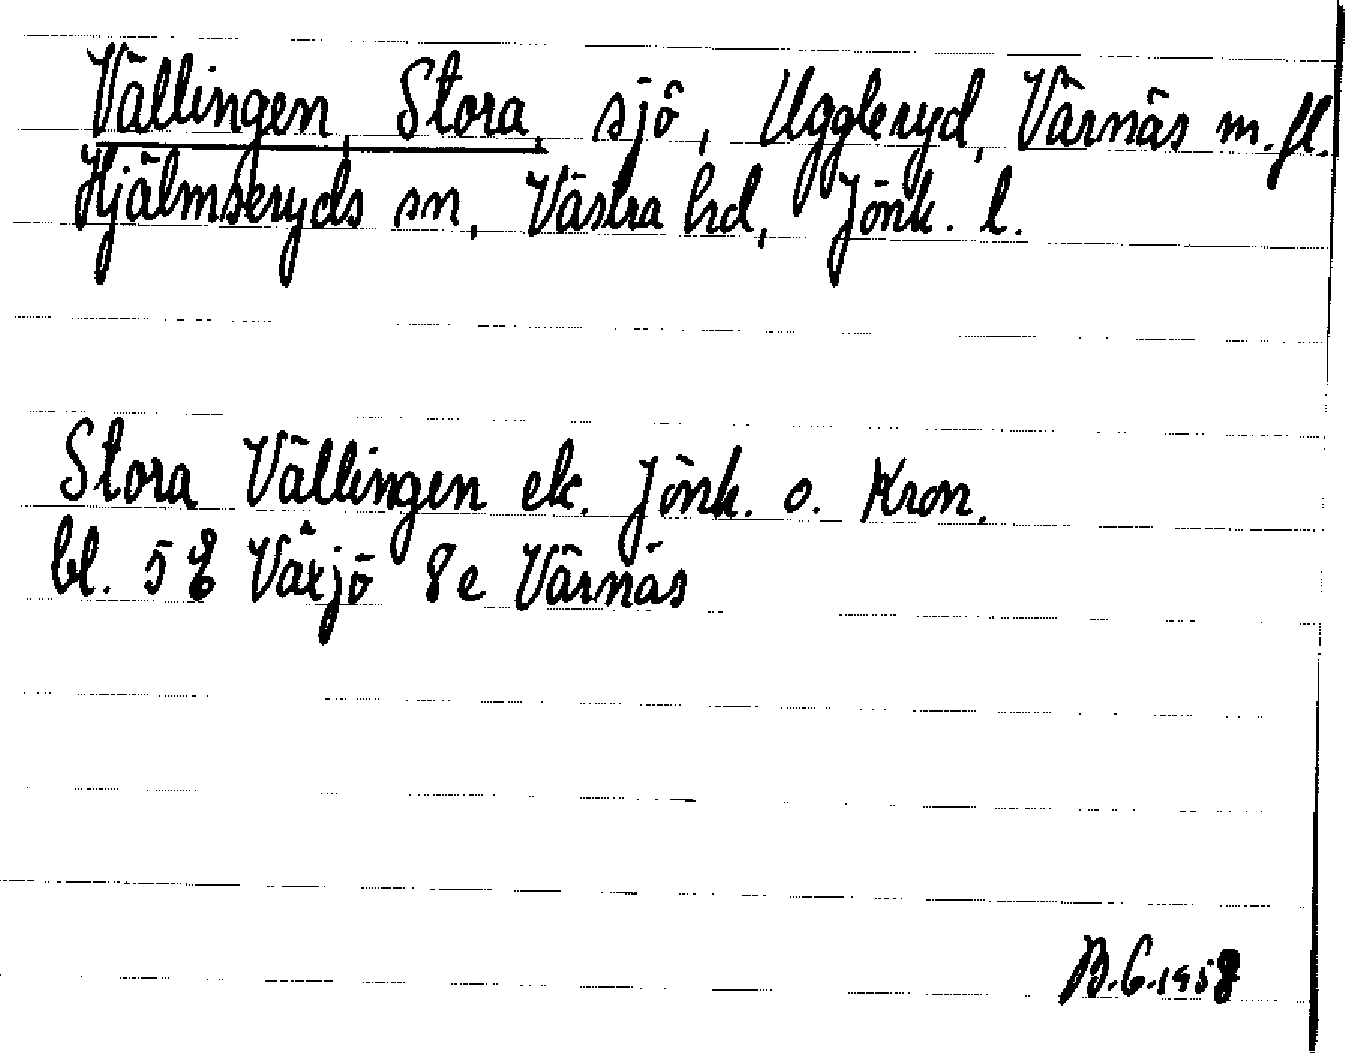 Vällingen, Stora, sjö, Uggleryd, Värnäs m.fl.
Hjälmseryds sn, Västra hd, Jönk. l.
Stora Vällingen ek. Jönk. o. Kron.
bl. 5 E Växjö 8e Värnäs
B.G.1958